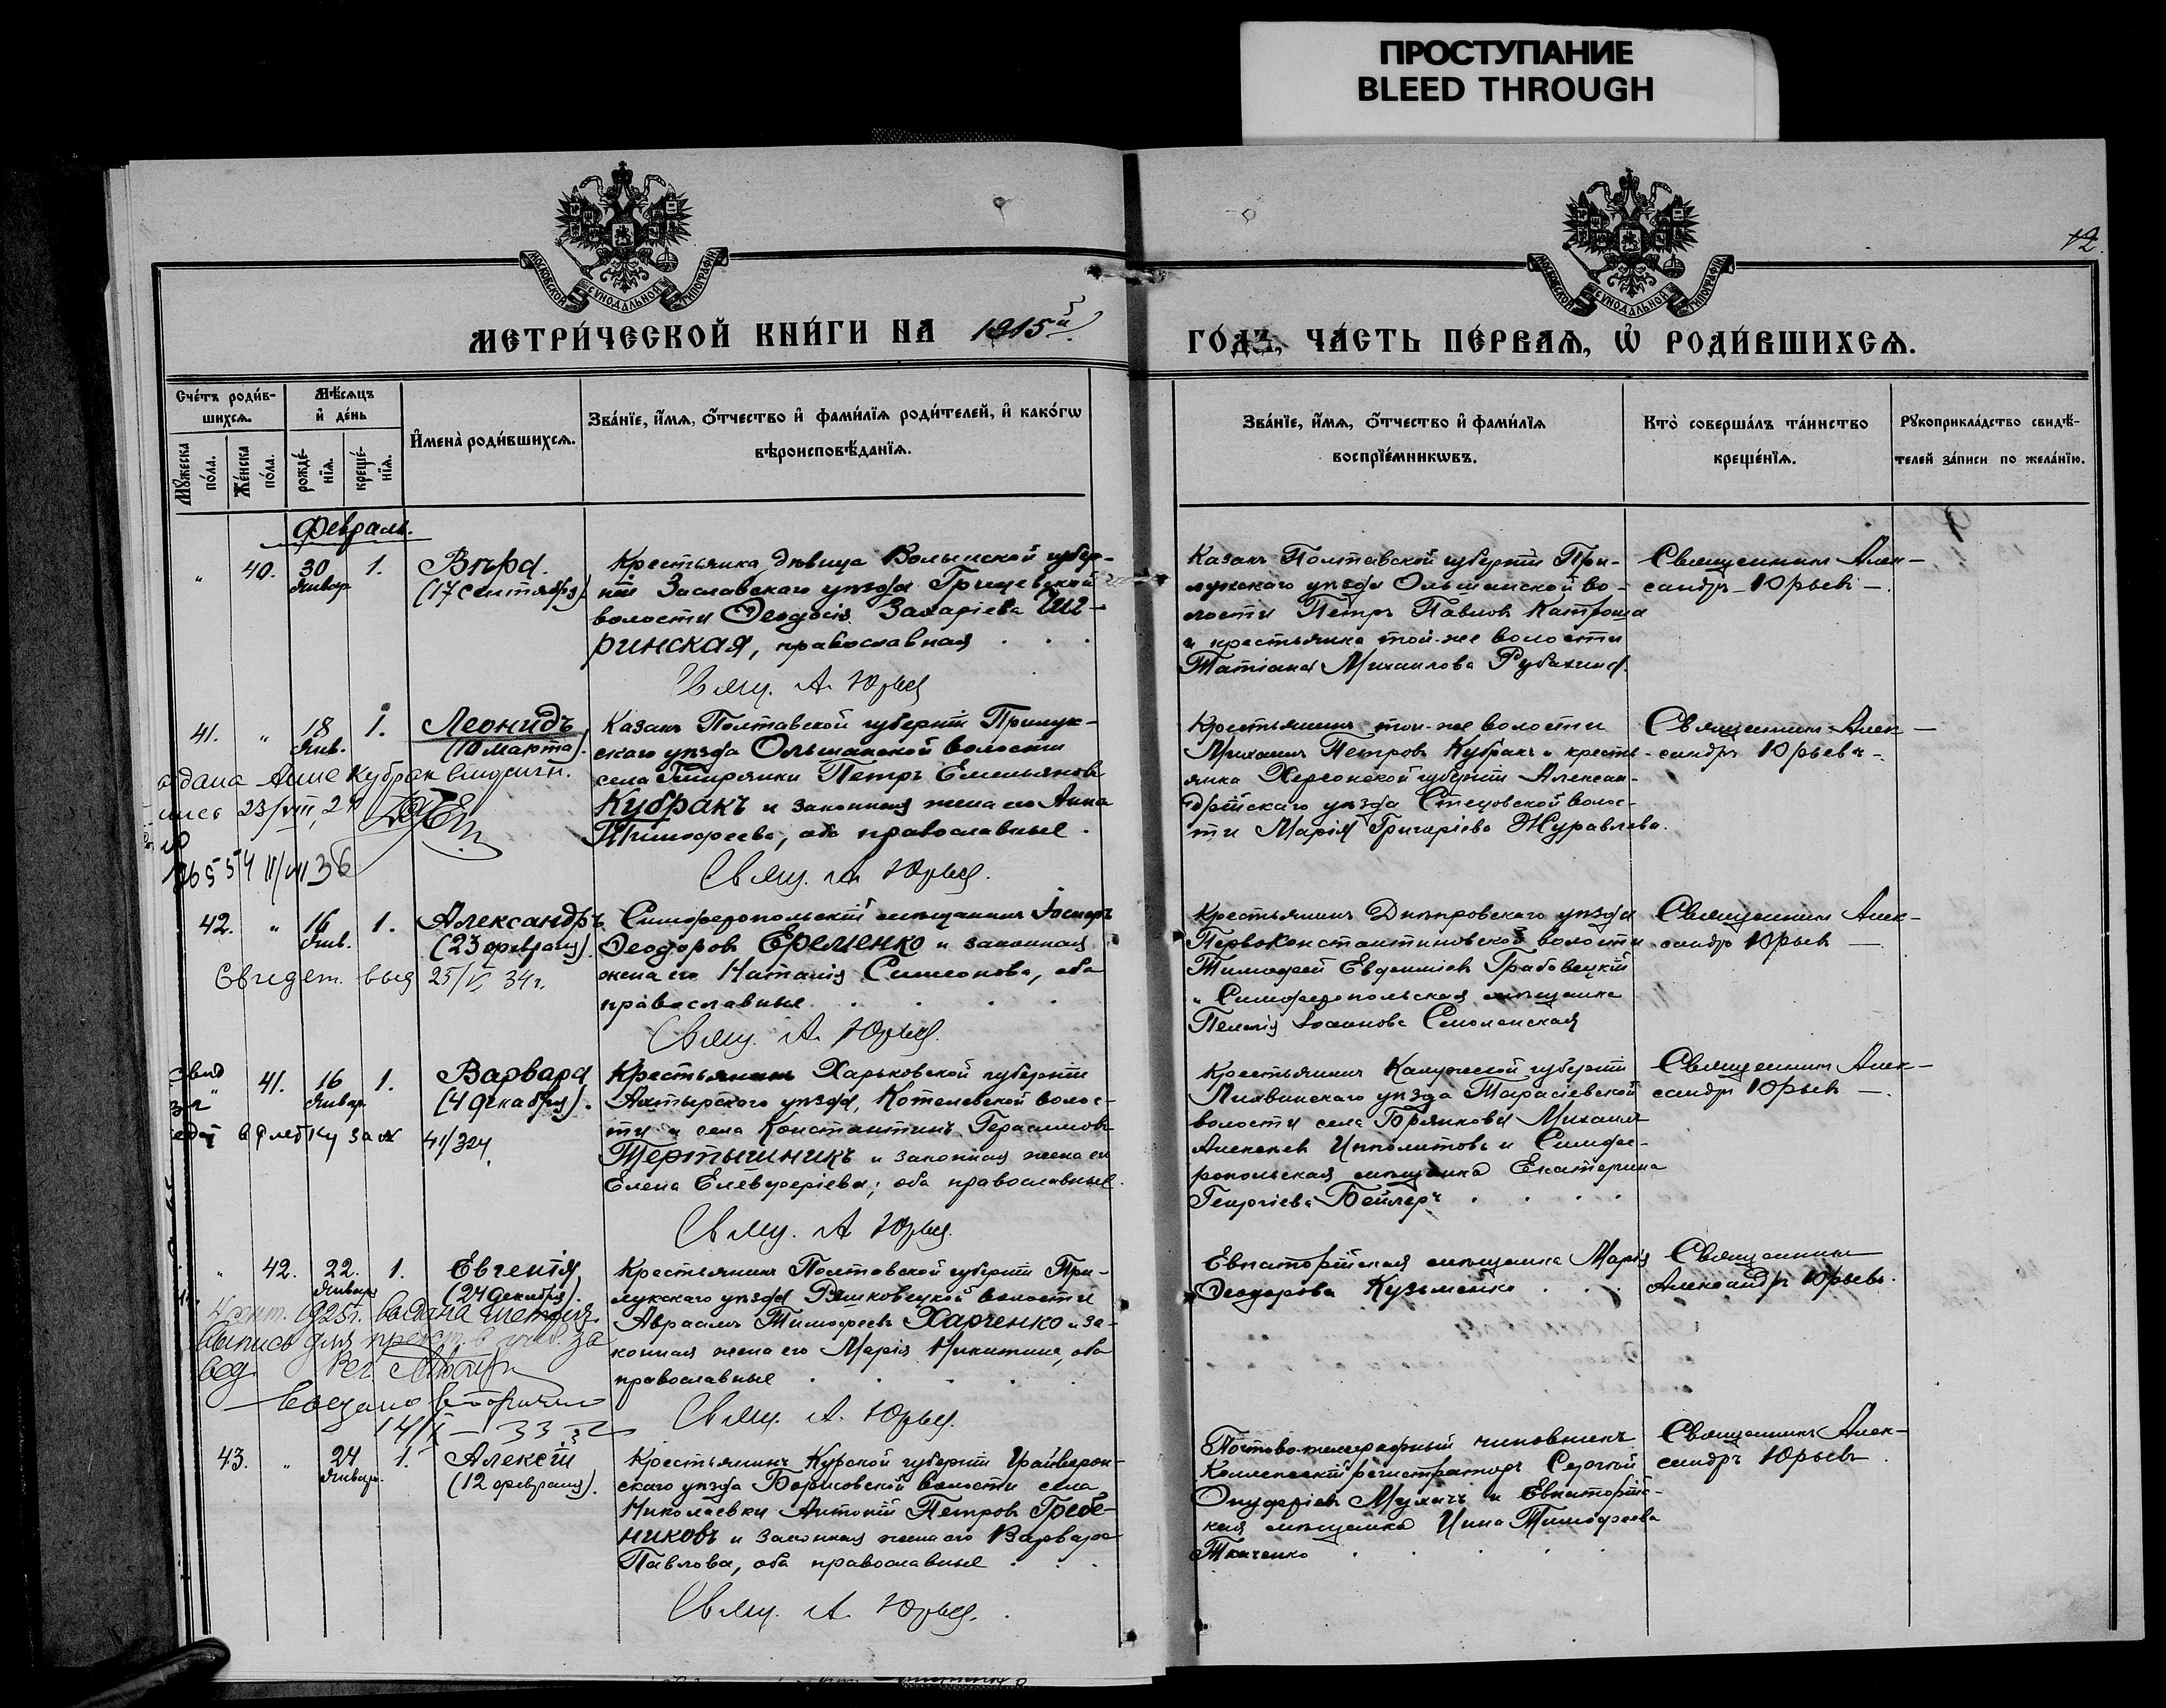 ПРОСТУПАНИЕ
BLEED THROUGH
12
МОСКОВСКОЙ СѴНОДАЛЬНОЙ ТИПОГРАФІИ
МОСКОВСКОЙ СѴНОДАЛЬНОЙ ТИПОГРАФІИ
МЕТРИ́ЧЕСКОЙ КНИ́ГИ НА 1915й
ГО́ДЪ, ЧА́СТЬ ПЕ́РВАѦ, Ѡ҆ РОДИ́ВШИХСѦ.
Сче́тъ роди́в-
шихсѧ.
Мꙋжеска по́ла.
Же́нска по́ла.
Мѣ́сѧцъ
и҆ де́нь
рожде́-
нїѧ.
креще́-
нїѧ.
И҆мена̀ роди́вшихсѧ.
Зва́нїе, и҆́мѧ, ѻ҆́тчество и҆ фами́лїѧ роди́телей, и҆ како́гѡ
вѣроисповѣ́данїѧ.
Зва́нїе, и҆́мѧ, ѻ҆́тчество и҆ фами́лїѧ
воспрїе́мникѡвъ.
Кто̀ соверша́лъ та́инство
креще́нїѧ.
Рꙋкоприкла́дство свидѣ́-
телей за́писи по жела́нїю.
Февраль.
" 40. 30 Январ. 1.
Вѣра.
(17 сентября)
Крестьянка, дѣвица Волынской губер-
ніи Заславскаго уѣзда Грицевской
волости Ѳеодосія Захаріева Ши-
ринская, православная . . .
Свящ. А. Юрьев
Казакъ Полтавской губерніи При-
лукскаго уѣзда Ольшанской во-
лости Петръ Павловъ Катроша
и крестьянка той-же волости
Татіана Михаилова Рубахина.
Священникъ Алек-
сандръ Юрьевъ —.
41. " 18 Янв. 1.
Леонидъ
(10 марта).
Казакъ Полтавской губерніи Прилук-
скаго уѣзда Ольшанской волости
села Петръ Емельяновъ
Кубракъ и законная жена его Анна
Тимофеева, оба православные.
Свящ. А. Юрьев.
Анне Кубрак
23/VIII, 24
II/VII 36
Крестьянинъ той-же волости
Михаилъ Петровъ Кубракъ и кресть-
янка Херсонской губерніи Алексан-
дрійскаго уѣзда Стецовской волос-
ти Марія Григоріева Журавлева.
Священникъ Алек-
сандръ Юрьевъ —.
42. " 16 Янв. 1.
Александръ
(23 февраля).
Симферопольскій мѣщанинъ Іосифъ
Ѳеодоровъ Еременко и законная
жена его Наталія Симеонова, оба
православные . . . .
Свящ. А. Юрьев.
Свидет. выд 25/V 34г.
Крестьянинъ Днѣпровскаго уѣзда
Первоконстантиновской волости
Тимофей Евфиміевъ Грабовецкій
и Симферопольская мѣщанка
Пелагія Іоаннова Смоленская
Священникъ Алек-
сандръ Юрьевъ —.
" 41. 16 Январ. 1.
Варвара
(4 декабря).
Крестьянинъ Харьковской губерніи
Ахтырскаго уѣзда, Котелевской волос-
ти и села Константинъ Герасимовъ
Тертышникъ и законная жена его
Елена Елевферіева, оба православные.
Свящ. А Юрьев.
41/324
Крестьянинъ Калужской губерніи
Лихвинскаго уѣзда Тарасіевской
волости села Горянкова Михаилъ
Алексѣевъ Ипполитовъ и Симфе-
ропольская мѣщанка Екатерина
Георгіева Бейлеръ . . . .
Священникъ Алек-
сандръ Юрьевъ —.
" 42. 22. Января 1.
Евгенія
(24 декабря).
Крестьянинъ Полтавской губерніи При-
лукскаго уѣзда Ряшковецкой волости
Авраамъ Тимофеевъ Харченко и за-
конная жена его Марія Никитина, оба
православные . . . .
Свящ. А. Юрьев.
1925г. выдана
выпись для
Выдано вторично
14/X — 33 г
Евпаторійская мѣщанка Марія
Ѳеодорова Кузьменко . . .
Священникъ
Александръ Юрьевъ.
43. " 24 Января. 1.
Алексій
(12 февраля).
Крестьянинъ Курской губерніи Грайворон-
скаго уѣзда Борисовской волости села
Николаевки Антоній Петровъ Гребе-
никовъ и законная жена его Варвара
Павлова, оба православные . . .
Свящ. А. Юрьев.
Почтово-телеграфный чиновникъ
Коллежскій регистраторъ Сергѣй
Онуфріевъ Мухичъ и Евпаторій-
ская мѣщанка Нина Тимофеева
Ткаченко . . . . .
Священникъ Алек-
сандръ Юрьевъ.